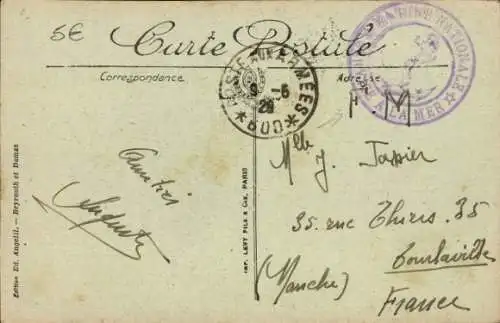 5€
Carte Postale
Correspondance
Adresse
POSTE AUX ARMÉES
9 -6
26
* 600 *
MARINE NATIONALE
A LA MER
F. M
Amitiés
Mlle J. Tapier
35. rue Thiers. 35
Tourlaville
(Manche)
France
Edition Ed. Angelil. — Beyrouth et Damas
IMP. LEVY FILS & Cie, PARIS